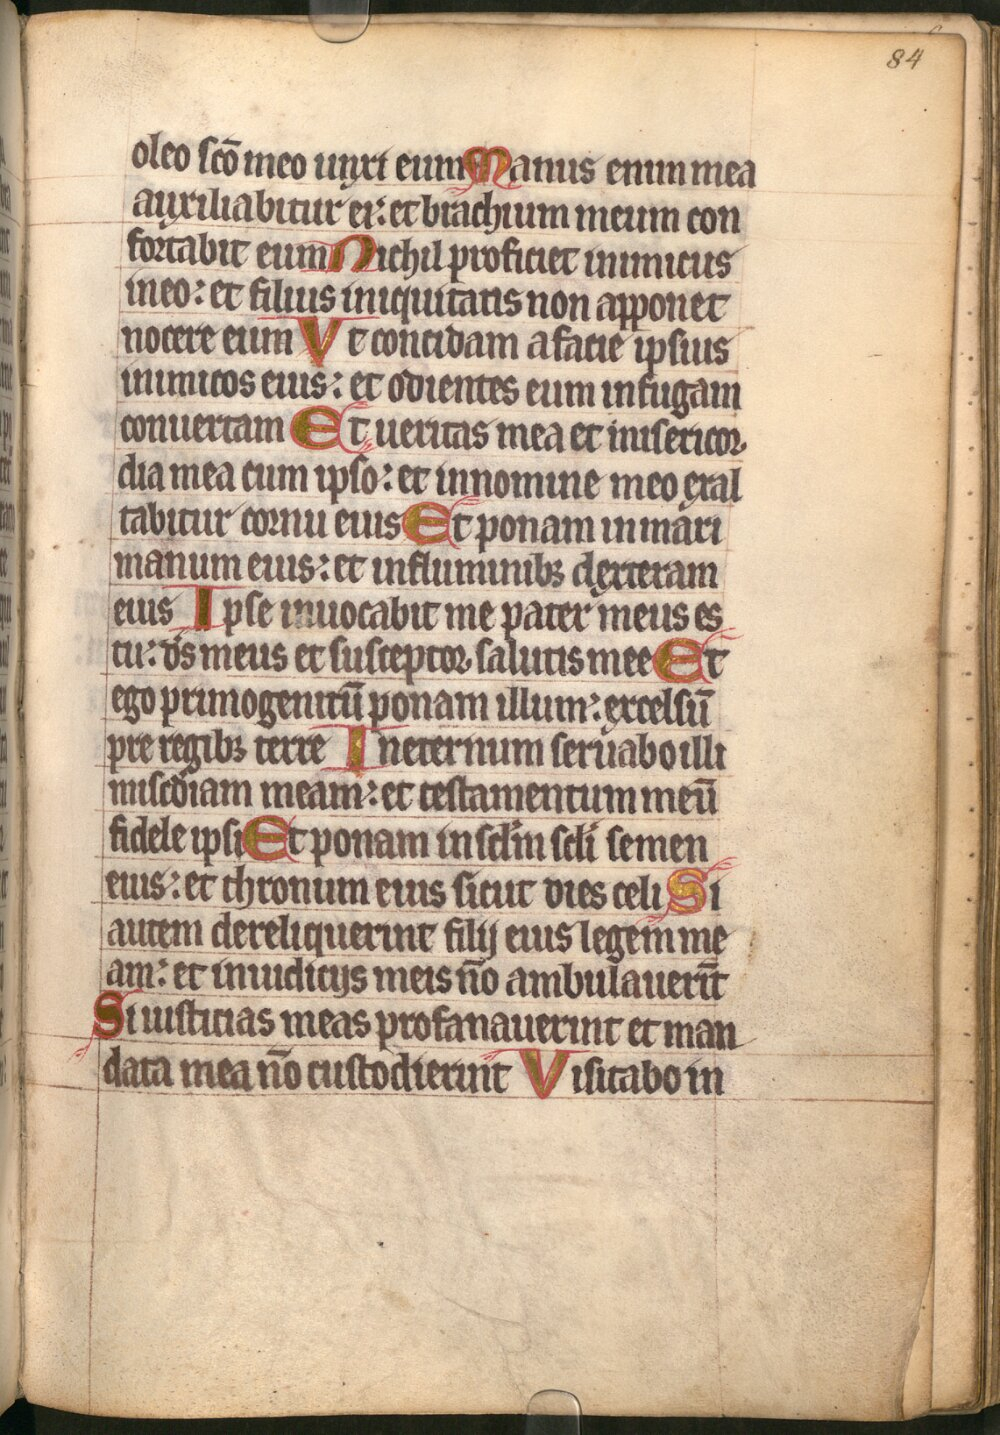 84
oleo scō meo unxi eum Manus enim mea
auxiliabitur ei: et brachium meum con
fortabit eum Nichil proficiet inimicus
in eo: et filius iniquitatis non apponet
nocere eum Vt concidam a facie ipsius
inimicos eius: et odientes eum in fugam
conuertam Et ueritas mea et misericor
dia mea cum ipso: et in nomine meo exal
tabitur cornu eius Et ponam in mari
manum eius: et in fluminibꝫ dexteram
eius Ipse inuocabit me pater meus es
tu: ds̄ meus et susceptor salutis mee Et
ego primogenitū ponam illum: excelsū
pre regibꝫ terre In eternum seruabo illi
miscdiam meam: et testamentum meū
fidele ipsi Et ponam in sclm̄ scli semen
eius: et thronum eius sicut dies celi Si
autem dereliquerint filij eius legem me
am: et in iudicijs meis nō ambulauerīt
Si iusticias meas profanauerint et man
data mea nō custodierint Visitabo in